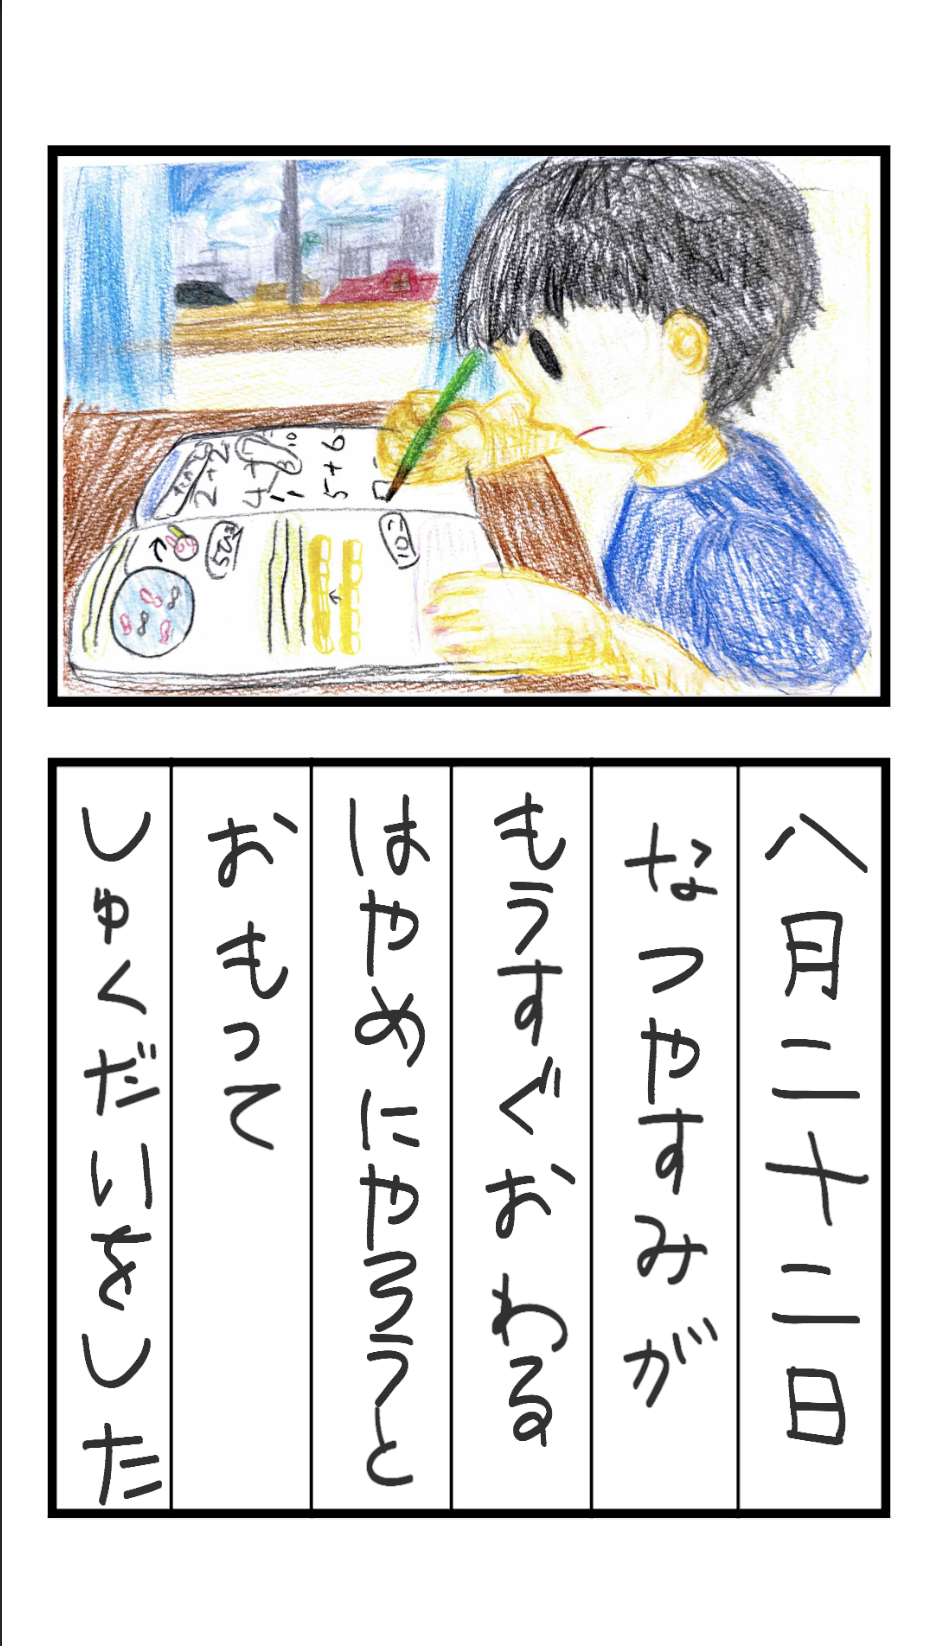 八月二十二日
なつやすみが
もうすぐおわる
はやめにやろうと
おもって
しゅくだいをした
2+2
5+6